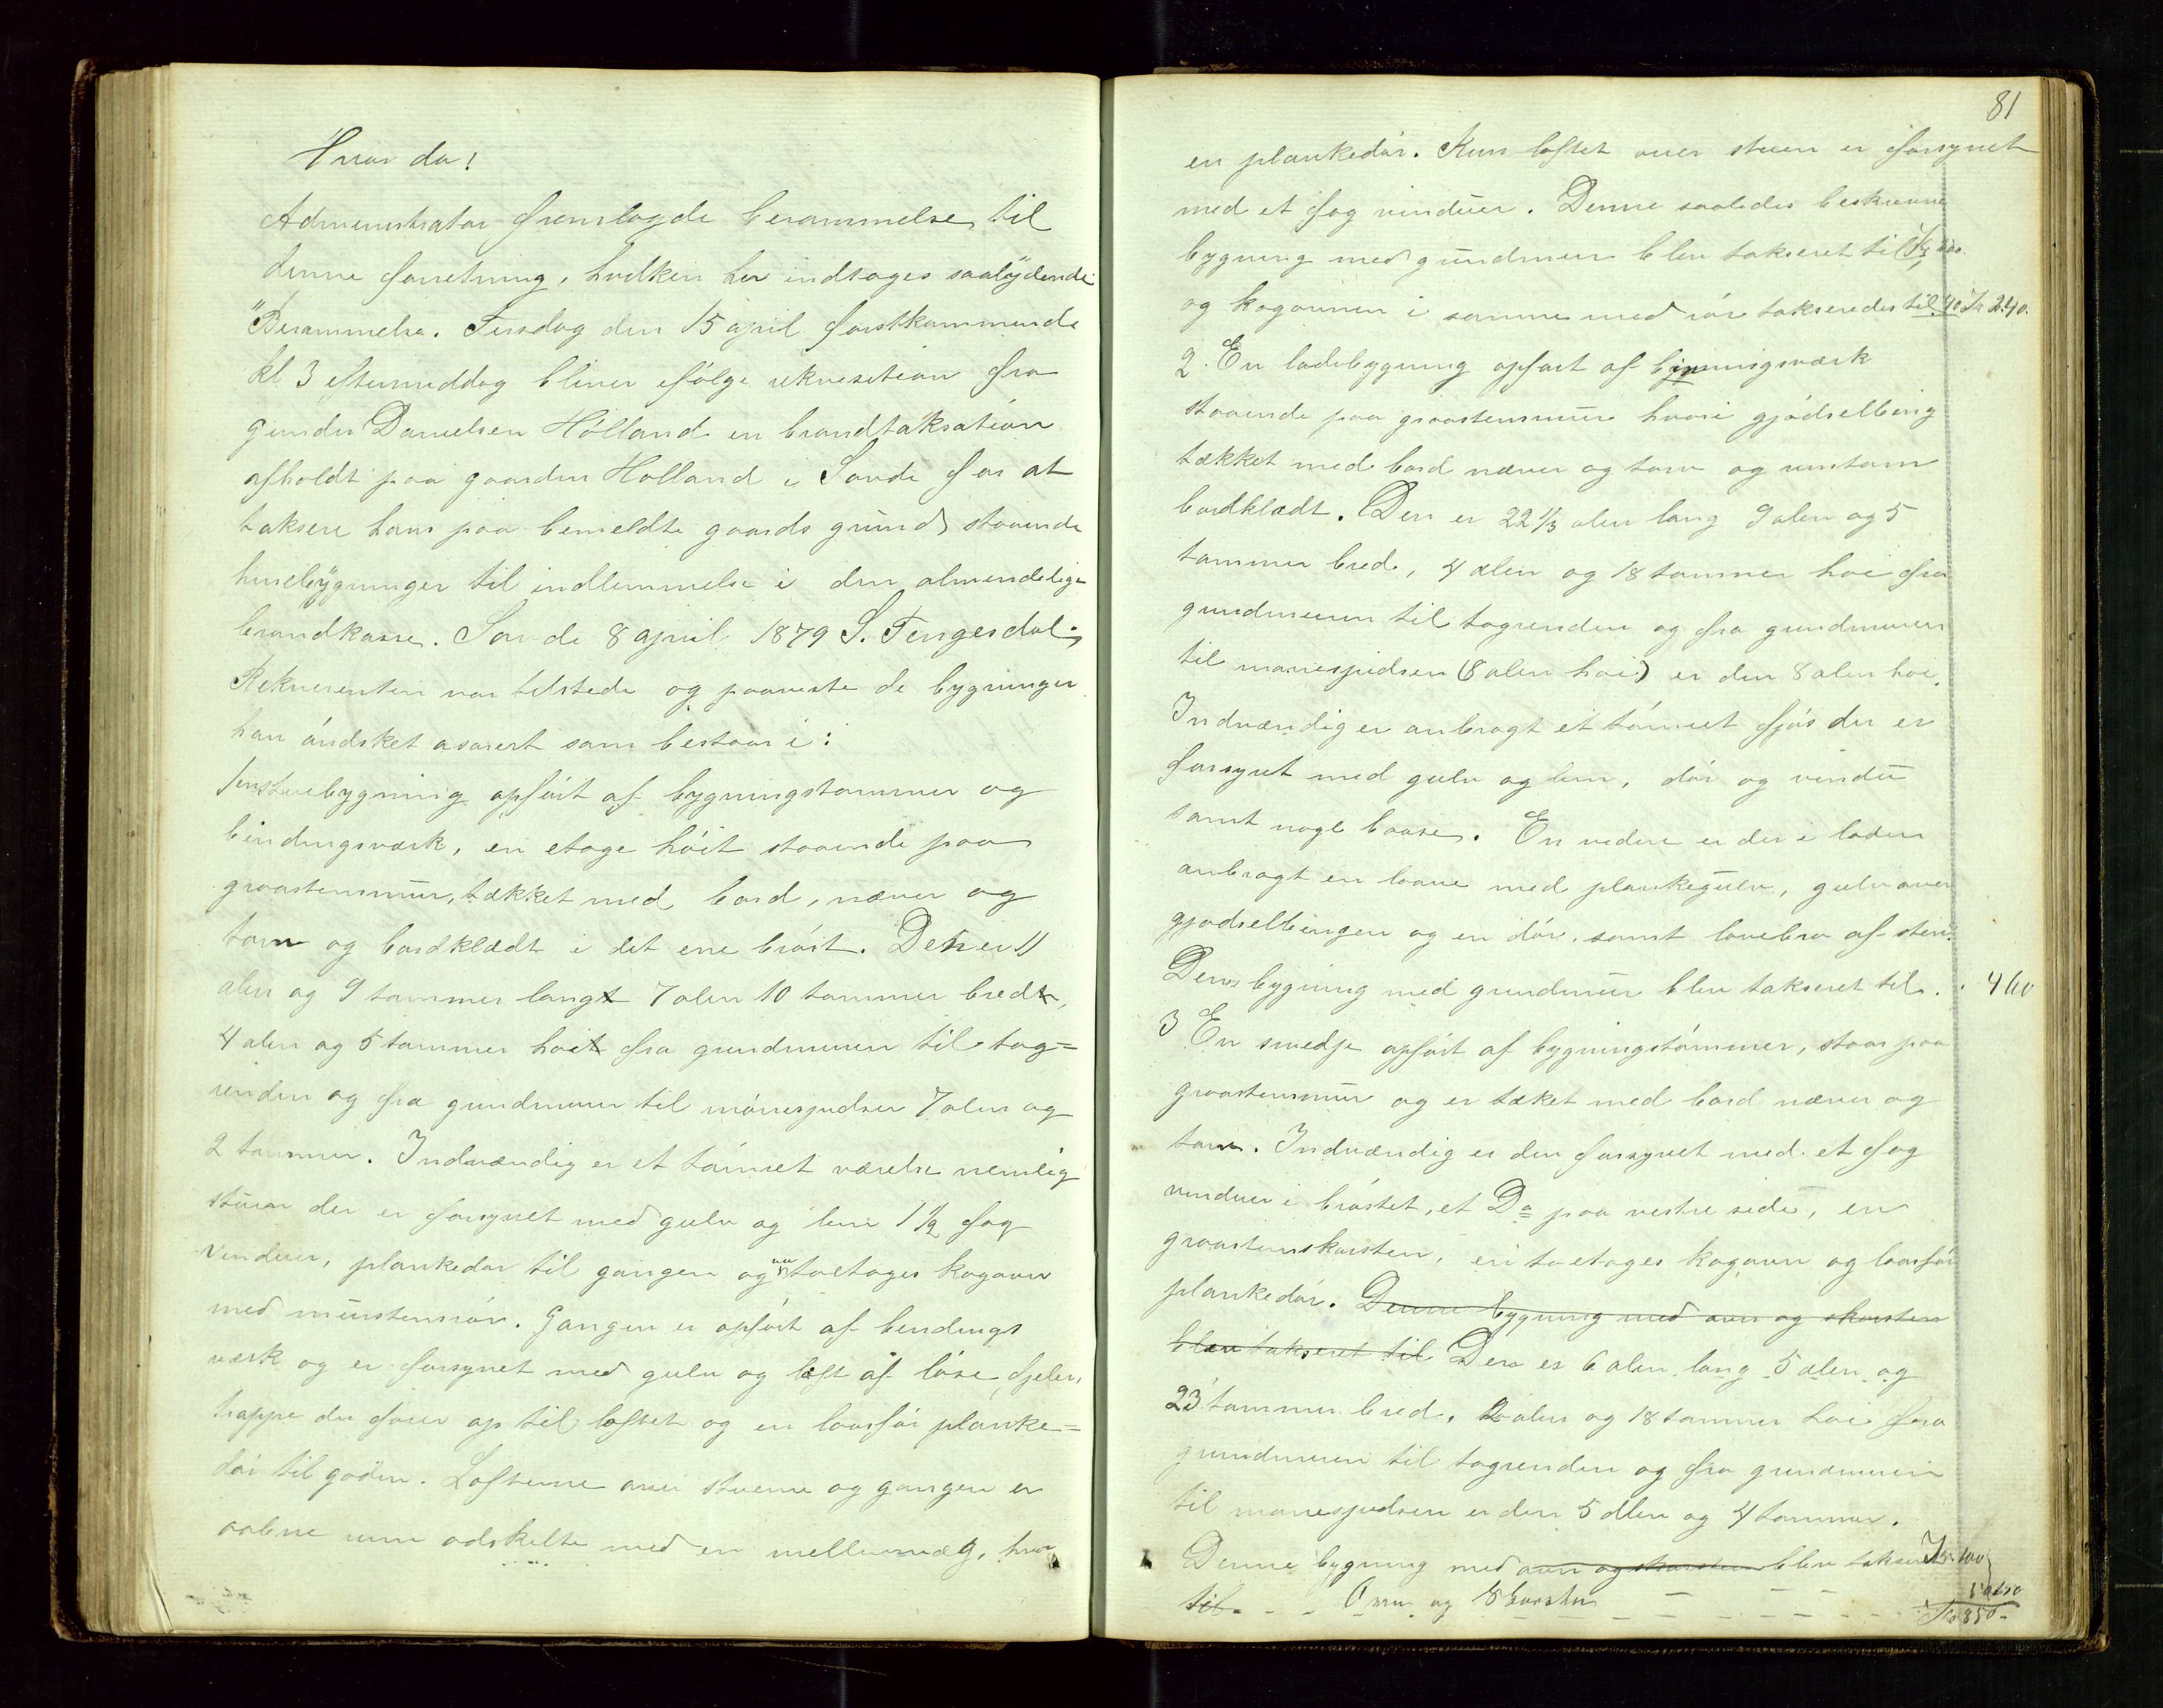 Hvor da!
Administrator fremlagde berammelse til
denne forretning, hvilken her indtages saalydende
"Berammelse. Tirsdag den 15 april førstkommende
kl 3 eftermiddag bliver ifølge rekvisition fra
gunder Danielsen Hølland en brandtaksation
afholdt paa gaarden Hølland i Sande for at
taksere hans paa bemeldte gaards grund staaende
husebygninger til indlemmelse i den almindelige
brandkasse. Sande 8 april 1879 S. Tengesdal„
Rekvirenten var tilstede og paaviste de bygninger
han øndsket asorert som bestaar i:
stuebygning opført af bygningstømmer og
bindingsværk, en etage høit staaende paa
graastensmur, tækket med bord, næver og
torv og bordklædt i det ene brøst. Den er 11
alen og 9 tommer langt 7 alen 10 tommer bredt,
4 alen og 5 tommer høit fra grundmuren til tag=
renden og fra grundmuren til mønespidsen 7 alen og
2 tommer. Indvændig er et tømret værelse nemlig
stuen der er forsynet med gulv og lem 1 1/2 fag
vinduer, plankedør til gangen og en toetages kogovn
med murstensrør. Gangen er opført af bendings
værk og er forsynet med gulv og loft af løse fjeler,
trappe der fører op til loftet og en laasfør planke=
dør til gaden. Lofterne over stuerne og gangen er
aabne rum adskilte med en mellemvæg, hvor
81
en plankedør. Kun loftet over stuen er forsynet
med et fag vinduer. Denne saaledes beskrevne
bygning med grundmur blev takseret til Kr 200.
og kogovnen i samme med rør takseredes til 40 Kr 240.
2. En ladebygning opført af bindningsværk
staaende paa graastensmur hvori gjødselbing
tækket med bord næver og torv og runtom
bordklædt. Den er 22 1/3 alen lang 9 alen og 5
tommer bred, 4 alen og 18 tommer høi fra
grundmuren til tagrenden og fra grundmuren
til mønespidsen (8 alen høi) er den 8 alen høi.
Indvændig er anbragt et tømret fjøs der er
forsynet med gulv og lem, dør og vindu
samt nogle baase. En videre er der i laden
anbragt en laave med plankegulv, gulv over
gjødselbingen og en dør, samt lavebro af sten.
Denne bygning med grundmur blev takseret til . . 460
3 En smedje opført af bygningstømmer, staar paa
graastensmur og er tækket med bord næver og
torv. Indvændig er den forsynet med et fag
vinduer i brøstet, et Do paa vestre side, en
graastenskorsten, en toetages kogovn og laasfør
plankedør. Denne bygning med ovn og skorsten
blev takseret til Den er 6 alen lang 5 alen og
23 tommer bred, 2 alen og 18 tommer høi fra
grundmuren til tagrenden og fra grundmuren
til mønespidsen er den 5 alen og 4 tommer.
Denne bygning med ovn og skorsten blev takseret Kr 100
til - - Ovn og Skorsten - - - -
Kr 850-